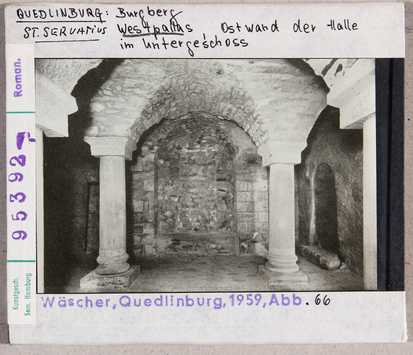 QUEDLINBURG: Burgberg
ST. SERVATIUS Westpalas, Ostwand der Halle
im Untergeschoss
Roman.
95392
Kunstgesch.
Sem. Hamburg
Wäscher, Quedlinburg, 1959, Abb. 66